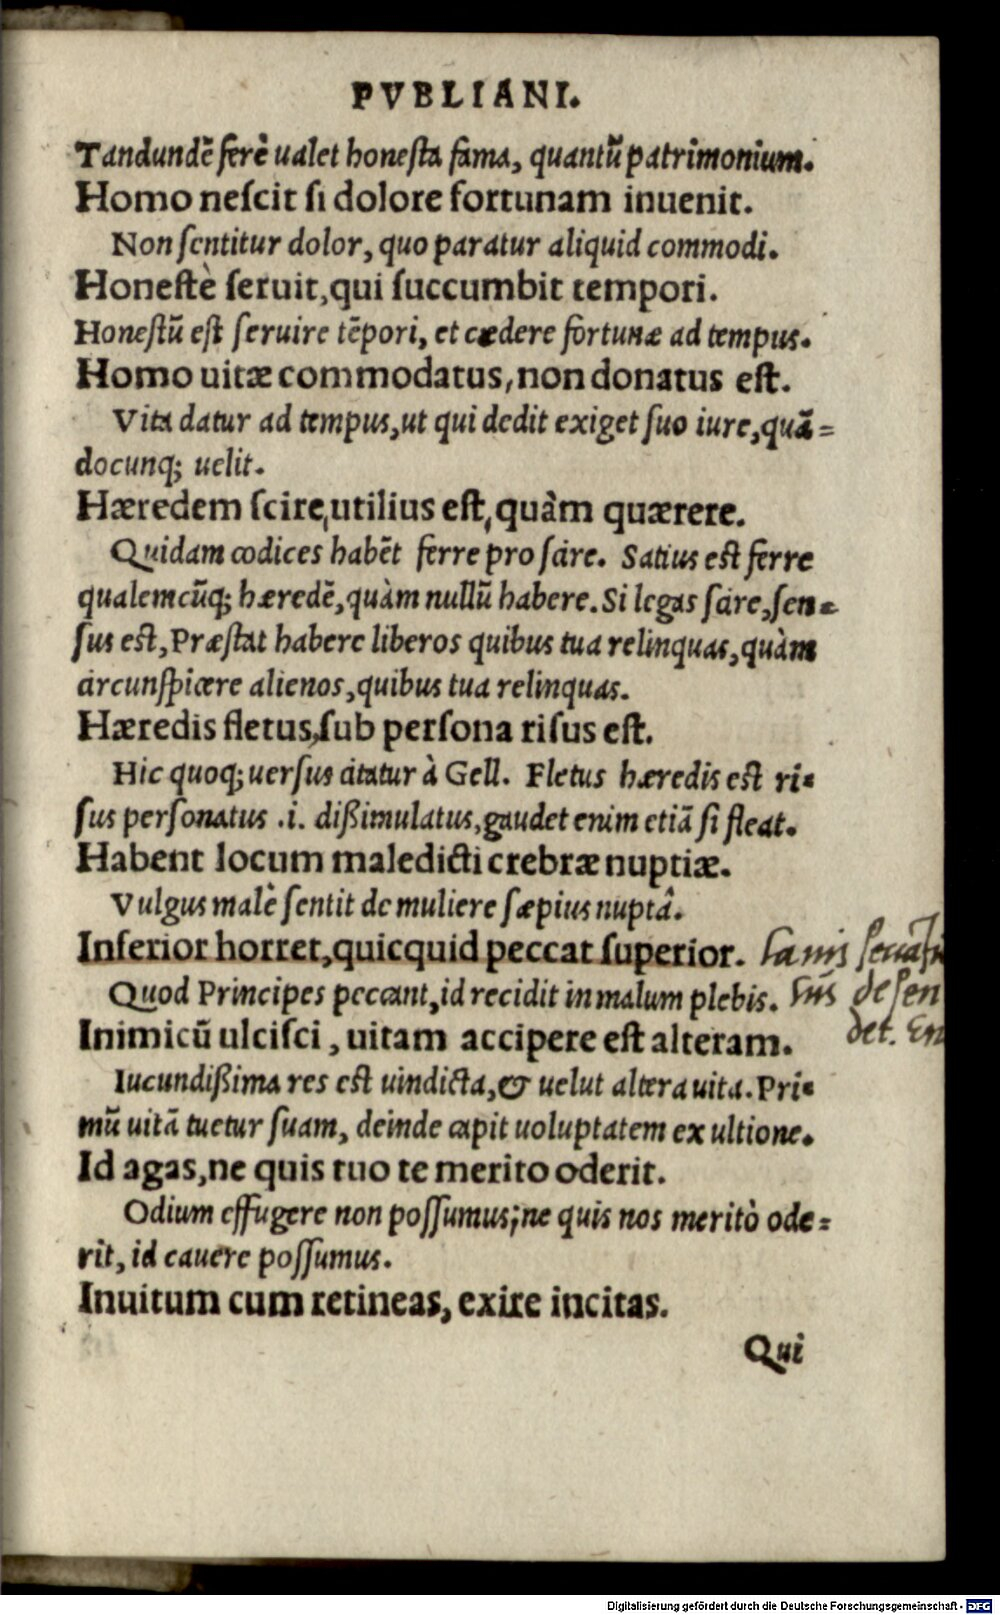 PVBLIANI.
Tandundē ferè ualet honesta fama, quantū patrimonium.
Homo nescit si dolore fortunam inuenit.
Non sentitur dolor, quo paratur aliquid commodi.
Honestè seruit, qui succumbit tempori.
Honestū est seruire tēpori, et cædere fortunæ ad tempus.
Homo uitæ commodatus, non donatus est.
Vita datur ad tempus, ut qui dedit exiget suo iure, quā=
docunq; uelit.
Hæredem scire, utilius est, quàm quærere.
Quidam codices habēt ferre pro scire. Satius est ferre
qualemcūq; hæredē, quàm nullū habere. Si legas scire, sen=
sus est, Præstat habere liberos quibus tua relinquas, quàm
circunspicere alienos, quibus tua relinquas.
Hæredis fletus, sub persona risus est.
Hic quoq; uersus citatur à Gell. Fletus hæredis est ri=
sus personatus .i. dißimulatus, gaudet enim etiā si fleat.
Habent locum maledicti crebræ nuptiæ.
Vulgus malè sentit de muliere sæpius nuptâ.
Inferior horret, quicquid peccat superior.
Quod Principes peccant, id recidit in malum plebis.
Inimicū ulcisci, uitam accipere est alteram.
det. En
Iucundißima res est uindicta, & uelut altera uita. Pri=
mū uitā tuetur suam, deinde capit uoluptatem ex ultione.
Id agas, ne quis tuo te merito oderit.
Odium effugere non possumus; ne quis nos meritò ode=
rit, id cauere possumus.
Inuitum cum retineas, exire incitas.
Qui
Digitalisierung gefördert durch die Deutsche Forschungsgemeinschaft - DFG